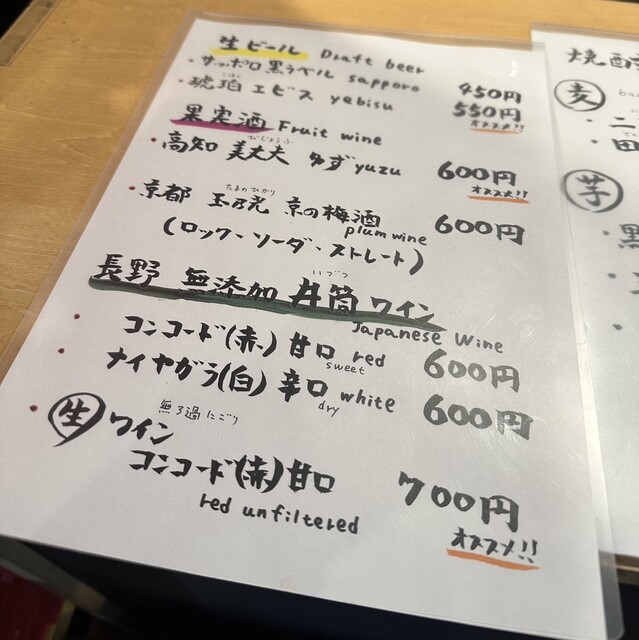 生ビール Draft beer
・サッポロ黒ラベル sapporo 450円
こはく
・琥珀ヱビス yebisu 550円
オススメ!!
果実酒 Fruit wine
びじょうふ
・高知 美丈夫 ゆず yuzu 600円
オススメ!!
たまのひかり
・京都 玉乃光 京の梅酒 600円
plum wine
(ロック・ソーダ・ストレート)
いづつ
長野 無添加 井筒ワイン
Japanese Wine
・コンコード(赤) 甘口 red 600円
sweet
・ナイヤガラ(白) 辛口 white 600円
dry
無ろ過にごり
・生 ワイン
コンコード(赤)甘口 700円
red unfiltered
オススメ!!
焼酎
麦
・二
・田
芋
・黒